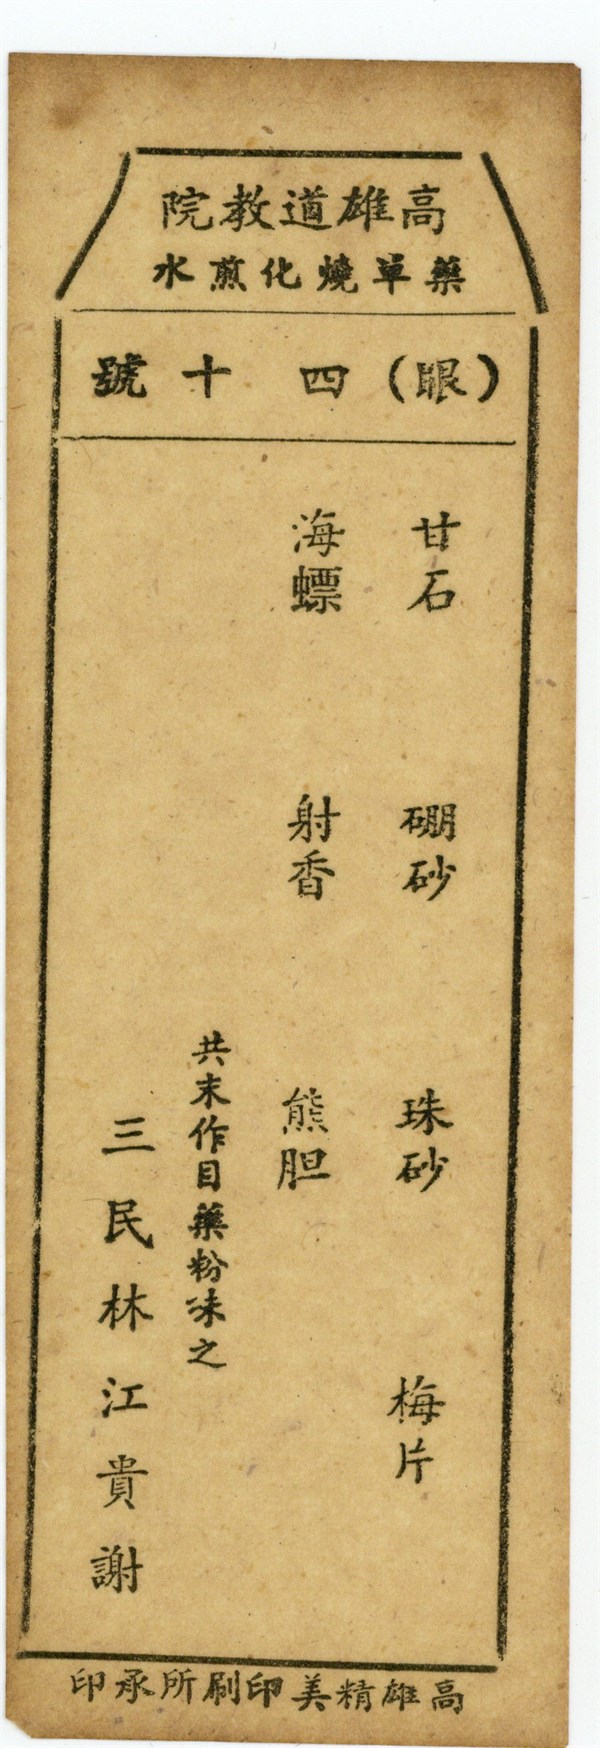 高雄道教院
藥單燒化煎水
（眼）四十號
甘石 硼砂 珠砂 梅片
海螵 射香 熊胆
共末作目藥粉沫之
三民林江貴謝
高雄精美印刷所承印